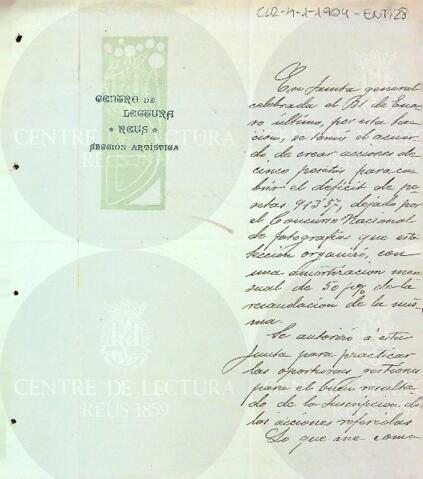 CLR-4-1-1904-ENT/28
CENTRO DE
LECTURA
REUS
SECCION ARTÍSTICA
En Junta general
celebrada el 31 de Ene-
ro último, por esta Sec-
cion, se tomó el acuer-
do, de crear acciones de
cinco pesetas para cu-
brir el déficit de pe-
setas 913'57, dejado por
el Concurso Nacional
de fotografías que esta
Sección organisó, con
una amortizacion men-
sual de 50 p% de la
recaudacion de la mis-
ma.
Se autorizó a esta
Junta para practicar
las oportunas gestiones
para el buen resulta-
do de la suscripcion de
las acciones referidas
Lo que me comu-
CENTRE DE LECTURA
REUS 1859
CENTRE DE LECTURA
REUS 1859